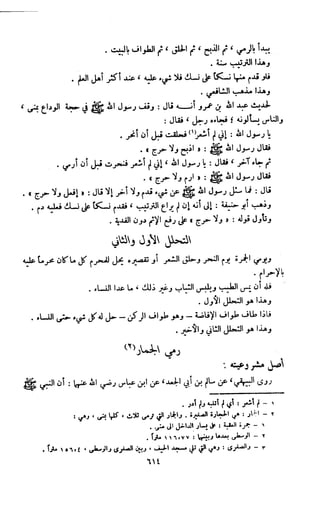 يبدأ بالرمي ، ثم الذبح ، ثم الحلق ، ثم الطواف بالبيت .
وهذا الترتيب سنة .
فلو قدم منها نسكا على نسك فلا شيء عليه ، عند أكثر أهل العلم .
وهذا مذهب الشافعي .
لحديث عبد الله بن عمرو أنه قال : وقف رسول الله ﷺ في حجة الوداع بمنى ،
والناس يسألونه ؛ فجاءه رجل ، فقال :
يا رسول الله : إني لم أشعر(١) فحلقت قبل أن أنحر .
فقال رسول الله ﷺ : « اذبح ولا حرج » .
ثم جاء آخر ، فقال : يا رسول الله ، إني لم أشعر فنحرت قبل أن أرمي .
فقال رسول الله ﷺ : « ارم ولا حرج » .
قال : فما سئل رسول الله ﷺ عن شيء قدم ولا أخر إلا قال : « افعل ولا حرج » .
وذهب أبو حنيفة : إلى أنه إن لم يراع الترتيب ، فقدم نسكا على نسك فعليه دم .
وتأول قوله : « ولا حرج » على رفع الإثم دون الفدية .
التحلل الأول والثاني
وبرمي الجمرة يوم النحر وحلق الشعر أو تقصيره يحل للمحرم كل ما كان محرما عليه
بالإحرام .
فله أن يمس الطيب ويلبس الثياب وغير ذلك ، ما عدا النساء .
وهذا هو التحلل الأول .
فإذا طاف طواف الإفاضة - وهو طواف الركن - حل له كل شيء حتى النساء .
وهذا هو التحلل الثاني والأخير .
رمي الجمار(٢)
أصل مشروعيته :
روى البيهقي ، عن سالم بن أبي الجعد ، عن ابن عباس رضي الله عنهما : أن النبي ﷺ
١ - لم أشعر : أي لم أنتبه ولم أدر .
٢ - الجمار : هي الحجارة الصغيرة . والجمار التي ترمى ثلاث ، كلها بمنى ، وهي :
١ - جمرة العقبة : على يسار الداخل إلى منى .
٢ - الوسطى بعدها وبينهما : ١١٦،٧٧ متراً .
٣ - والصغرى : وهي التي تلي مسجد الخيف ، وبين الصغرى والوسطى ، ١٥٦،٤ متراً .
٦١٤